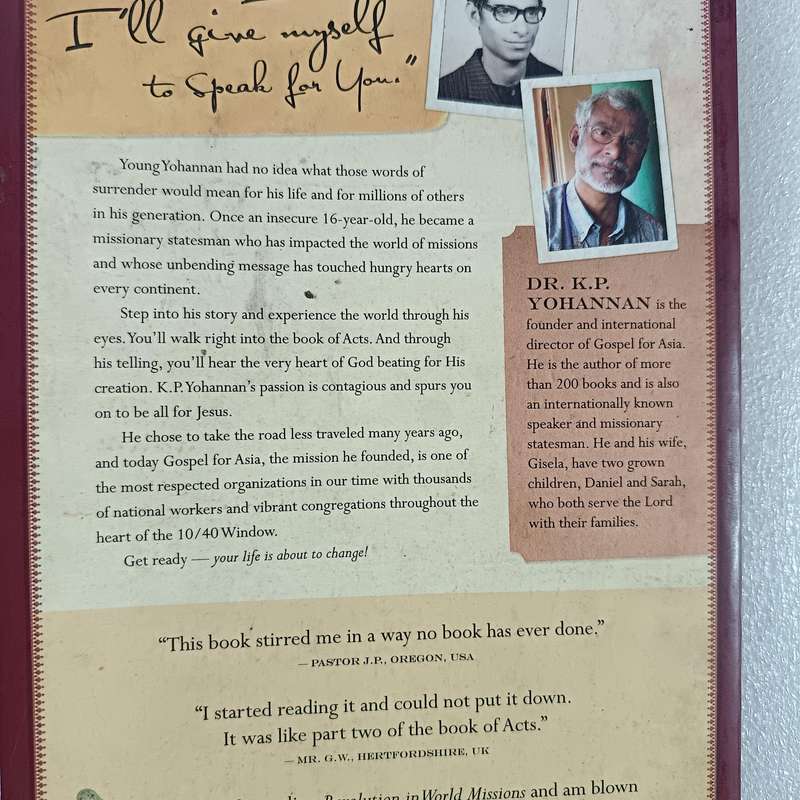 I'll give myself
to Speak for You."
Young Yohannan had no idea what those words of
surrender would mean for his life and for millions of others
in his generation. Once an insecure 16-year-old, he became a
missionary statesman who has impacted the world of missions
and whose unbending message has touched hungry hearts on
every continent.
Step into his story and experience the world through his
eyes. You'll walk right into the book of Acts. And through
his telling, you'll hear the very heart of God beating for His
creation. K.P. Yohannan's passion is contagious and spurs you
on to be all for Jesus.
He chose to take the road less traveled many years ago,
and today Gospel for Asia, the mission he founded, is one of
the most respected organizations in our time with thousands
of national workers and vibrant congregations throughout the
heart of the 10/40 Window.
Get ready — your life is about to change!
DR. K.P.
YOHANNAN is the
founder and international
director of Gospel for Asia.
He is the author of more
than 200 books and is also
an internationally known
speaker and missionary
statesman. He and his wife,
Gisela, have two grown
children, Daniel and Sarah,
who both serve the Lord
with their families.
"This book stirred me in a way no book has ever done."
— PASTOR J.P., OREGON, USA
"I started reading it and could not put it down.
It was like part two of the book of Acts."
— MR. G.W., HERTFORDSHIRE, UK
Revolution in World Missions and am blown